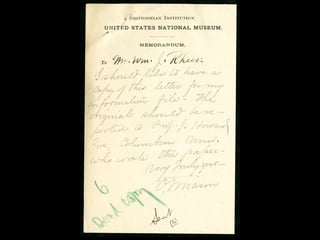 SMITHSONIAN INSTITUTION
UNITED STATES NATIONAL MUSEUM.
MEMORANDUM.
To Mr. Wm. J. Rhees.
I should like to have a
copy of this letter for my
information file - The
original should be re-
ported to Prof. J. Howard
Gore, Columbian Univ.
who wrote the paper -
Very truly yours
O. T. Mason
6
Dead copy
Sent